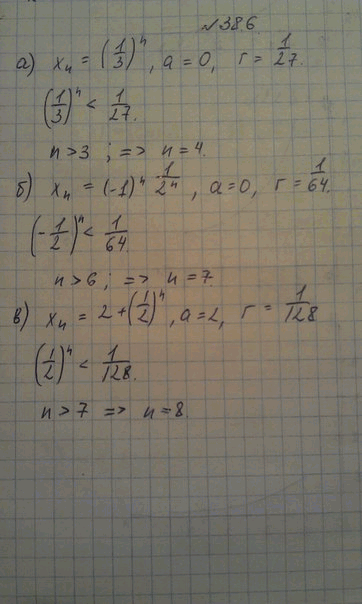 №386.
а) xₙ = (1/3)ⁿ, a = 0, r = 1/27.
(1/3)ⁿ < 1/27.
n > 3 ; => n = 4.
б) xₙ = (-1)ⁿ 1/2ⁿ, a = 0, r = 1/64.
(-1/2)ⁿ < 1/64.
n > 6 ; => n = 7.
в) xₙ = 2 + (1/2)ⁿ, a = 2, r = 1/128
(1/2)ⁿ < 1/128.
n > 7 => n = 8.